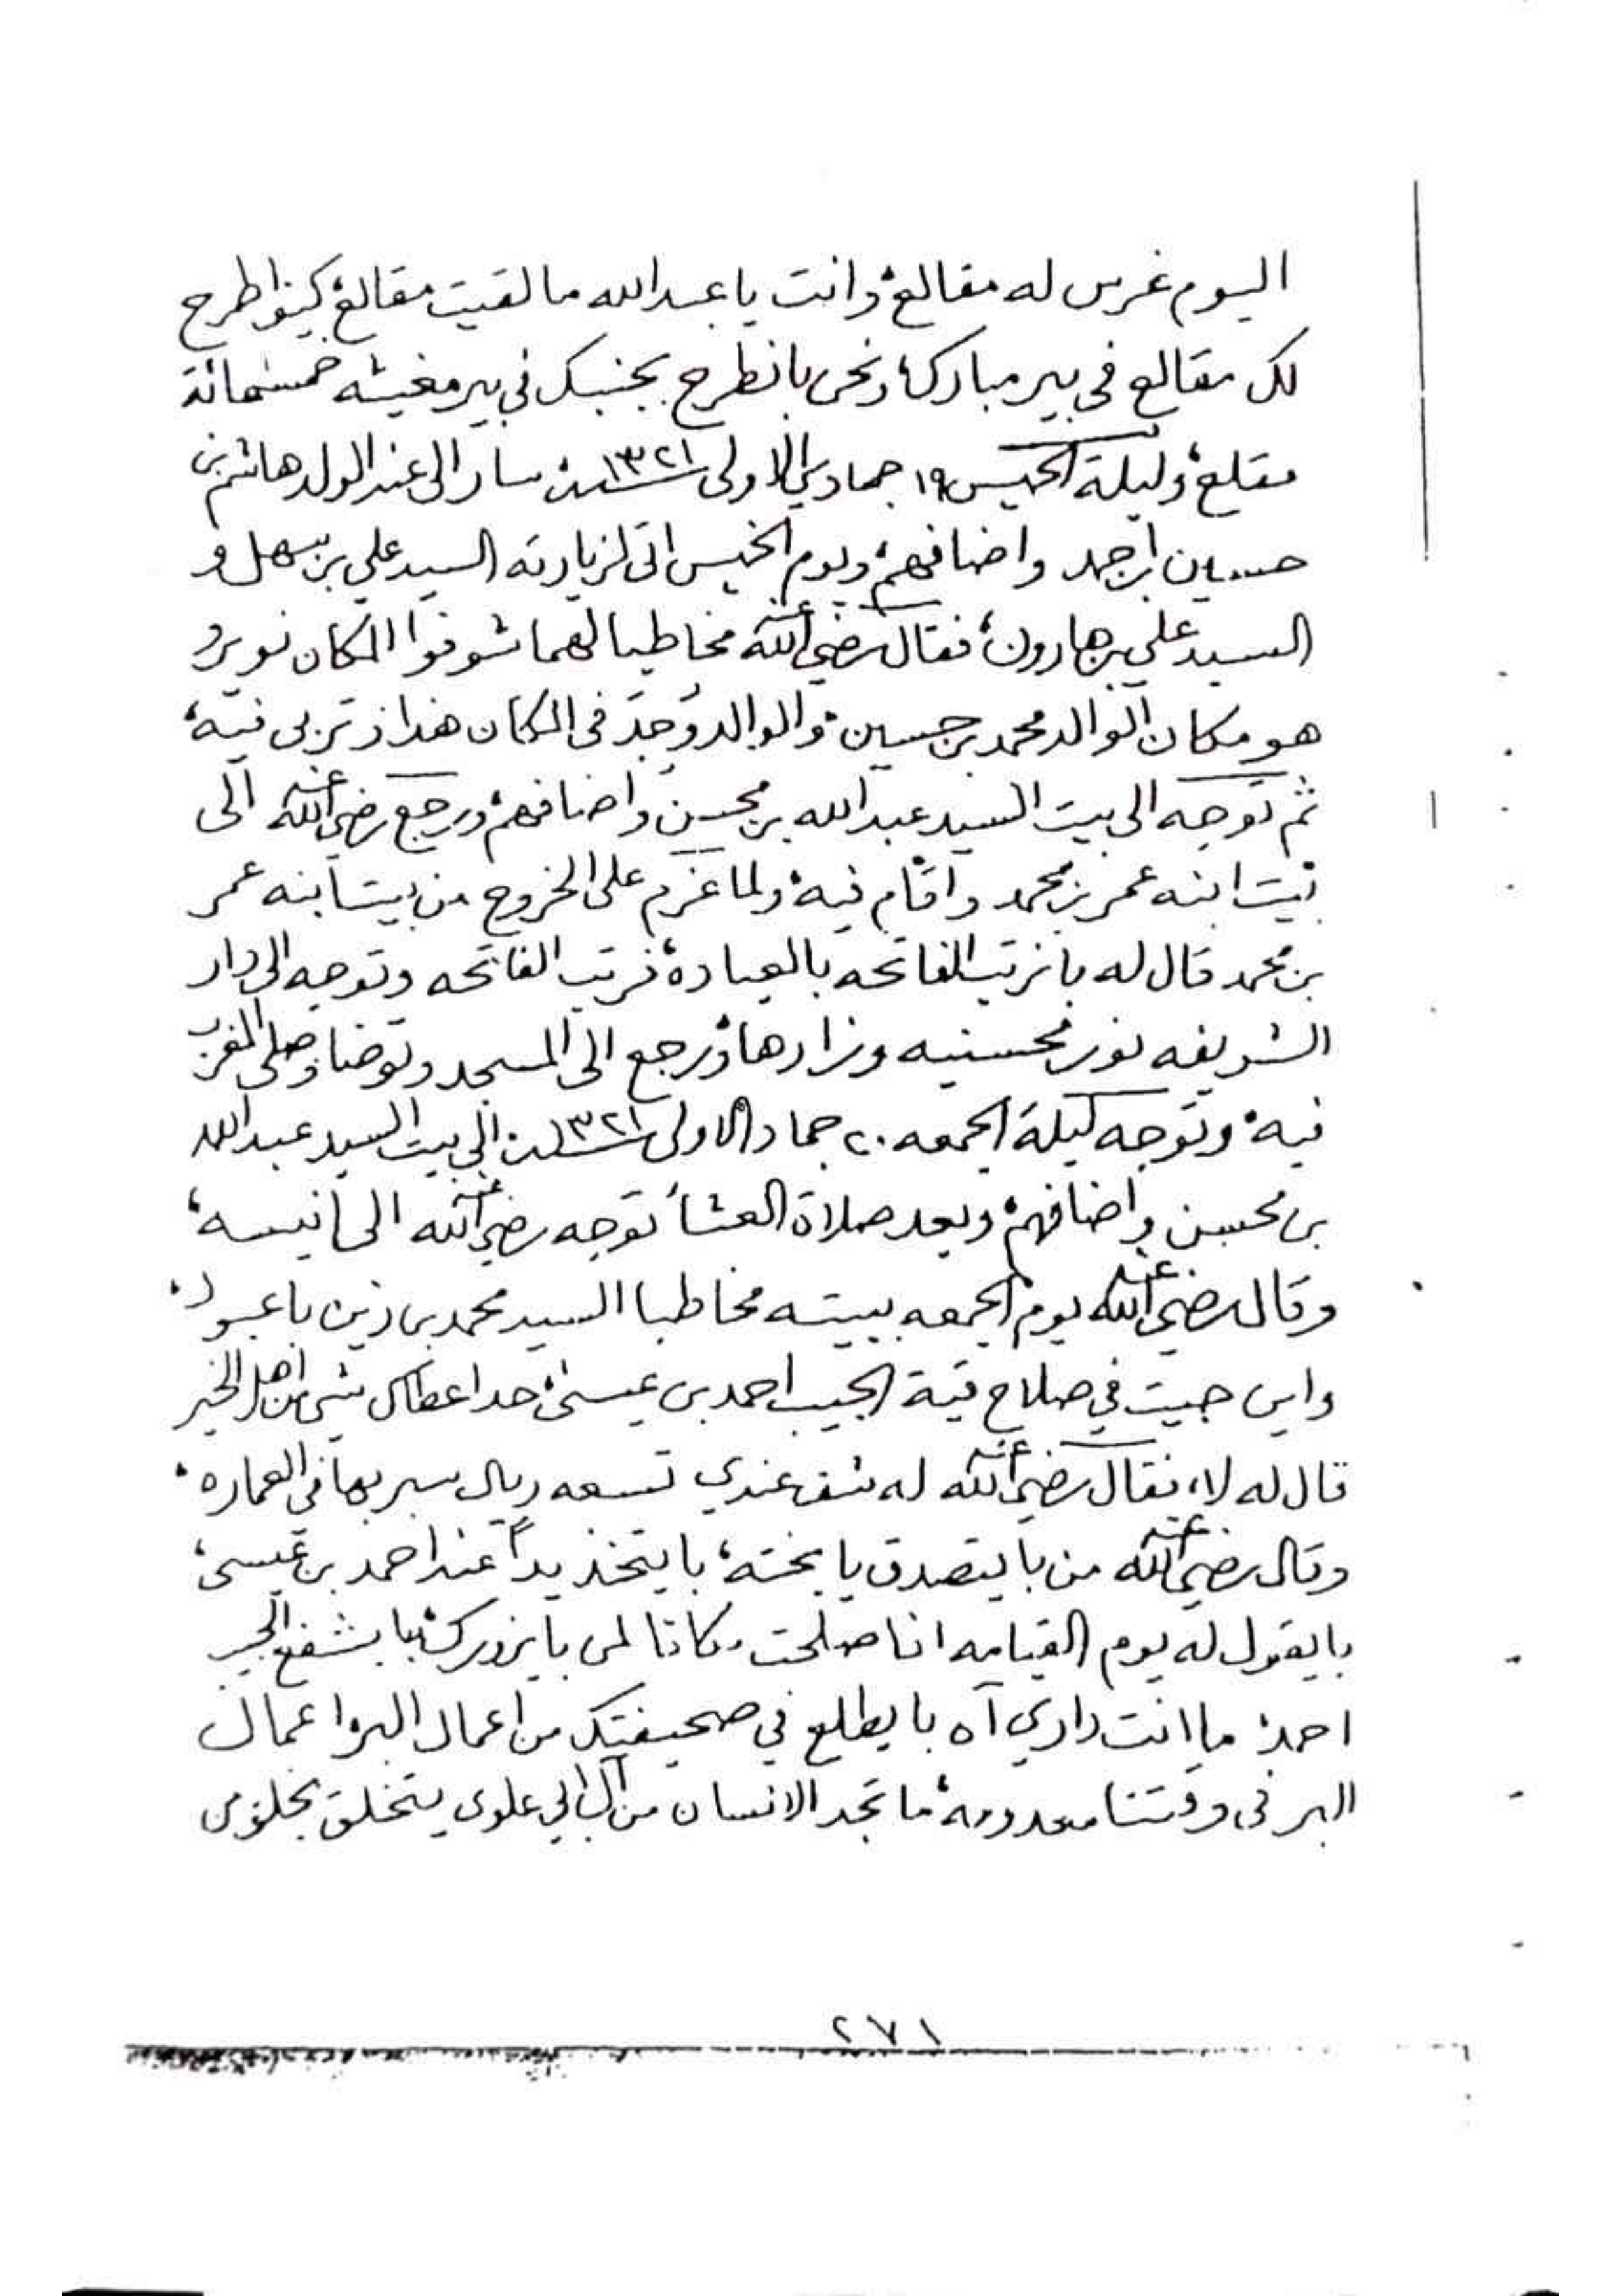 اليوم غرس له مقالع، وانت يا عبدالله ما لقيت مقالع، اطرح
لك مقالع في بير مبارك، ونحن بانطرح بجنبك في بير مغيشه خمسمائة
مقلع، وليلة الخميس ١٩ جمادي الاولى سنة ١٣٢١ سار الى عند الولد هاشم بن
حسين بن احمد واضافهم، ويوم الخميس اتى لزيارته السيد علي بن سهل و
السيد علي بن هارون، فقال رضي الله عنه مخاطبا لهما شوفوا المكان نوير و
هو مكان الوالد محمد بن حسين، والوالد وُجِدَ في المكان هذا وتربى فيه،
ثم توجه الى بيت السيد عبدالله بن محسن واضافهم، ورجع رضي الله عنه الى
بيت ابنه عمر بن محمد واقام فيه، ولما عزم على الخروج من بيت ابنه عمر
بن محمد قال له بانرتب الفاتحه بالعباده، فرتب الفاتحه وتوجه الى دار
الشريفه نور محسنيه وزارها، ورجع الى المسجد وتوضا وصلى المغرب
فيه، وتوجه ليلة الجمعه ٢٠ جماد الاولى سنة ١٣٢١ الى بيت السيد عبدالله
بن محسن واضافهم، وبعد صلاة العشاء توجه رضي الله عنه الى انيسه،
وقال رضي الله عنه يوم الجمعه ببيته مخاطبا السيد محمد بن زين باعبود،
واين جيت في صلاح قبة الحبيب احمد بن عيسى، حد اعطاك شي من اهل الخير
قال له لا، فقال رضي الله عنه له شف عندي تسعه ريال سير بها في العماره،
وقال رضي الله عنه من با يتصدق يا بخته، با يتخذ يداً عند احمد بن عيسى،
با يقول له يوم القيامه انا صلحت مكانا لمن با يزورك، با يشفع الحبيب
احمد، ما انت داري آه با يطلع في صحيفتك من اعمال البر، واعمال
البر في وقتنا معدومه، ما تجد الانسان من آل ابي علوي يتخلق بخلق من
٢٧١